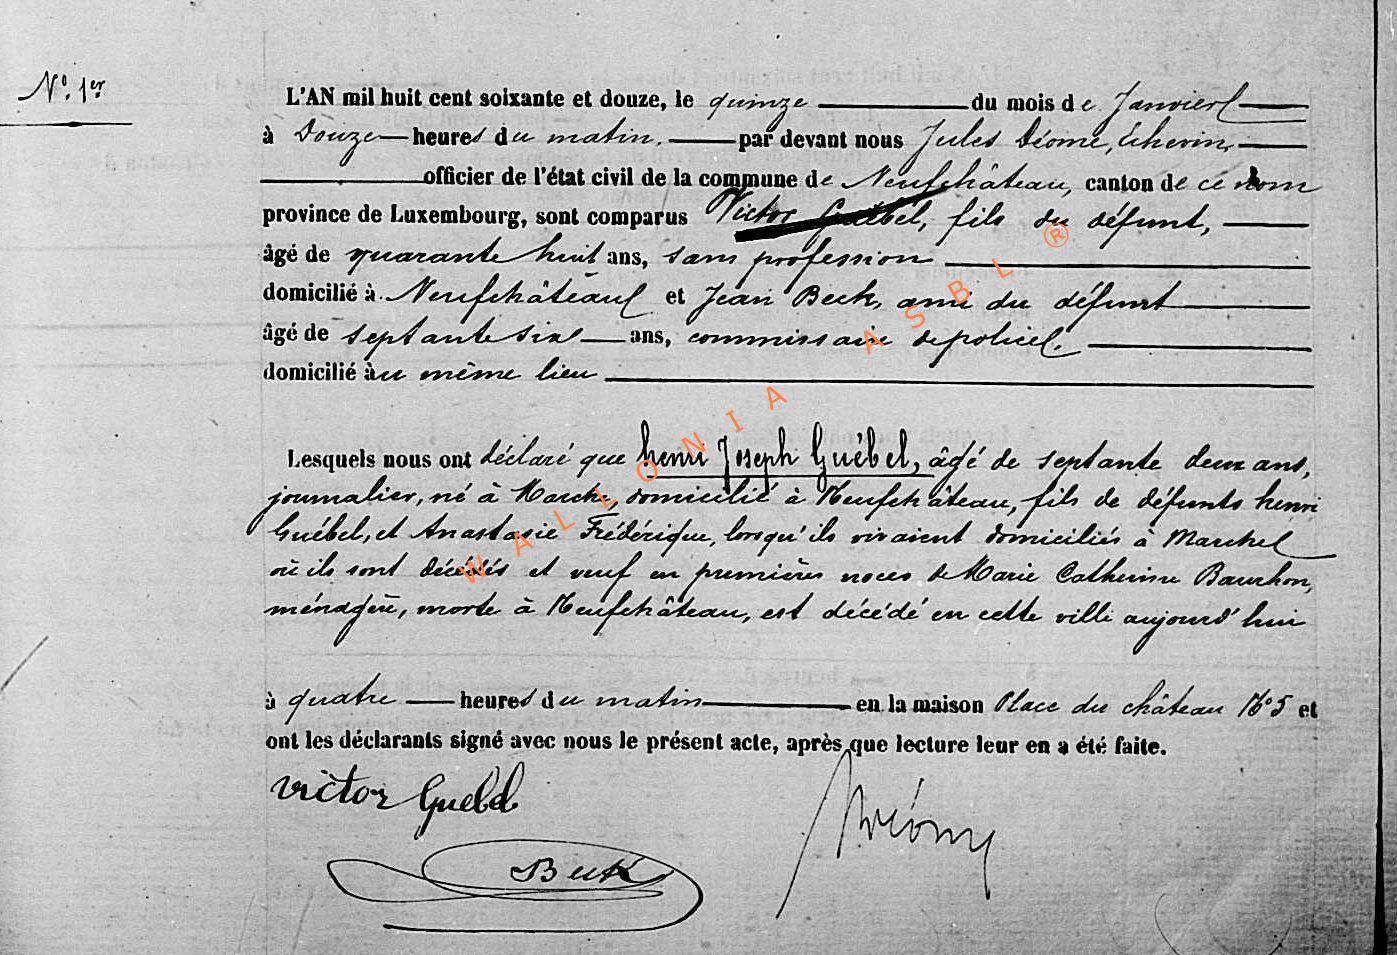 N° 1er
L'AN mil huit cent soixante et douze, le quinze du mois de Janvier
à Douze heures du matin. par devant nous Jules Déome, Echevin,
officier de l'état civil de la commune de Neufchâteau, canton de ce nom
province de Luxembourg, sont comparus Victor Guébel, fils du défunt,
âgé de quarante huit ans, sans profession
domicilié à Neufchâteau et Jean Beck, ami du défunt
âgé de septante six ans, commissaire de police.
domicilié au même lieu
Lesquels nous ont déclaré que henri Joseph Guébel, âgé de septante deux ans,
journalier, né à Marche, domicilié à Neufchâteau, fils de défunts henri
Guébel, et Anastasie Frédérique, lorsqu'ils vivaient domiciliés à Marche
où ils sont décédés et veuf en premières noces de Marie Catherine Bourhon,
ménagère, morte à Neufchâteau, est décédé en cette ville aujourd'hui
à quatre heures du matin en la maison Place du château N° 5 et
ont les déclarants signé avec nous le présent acte, après que lecture leur en a été faite.
Victor Guebel
Déome
Beck
WALLONIA ASBL ®